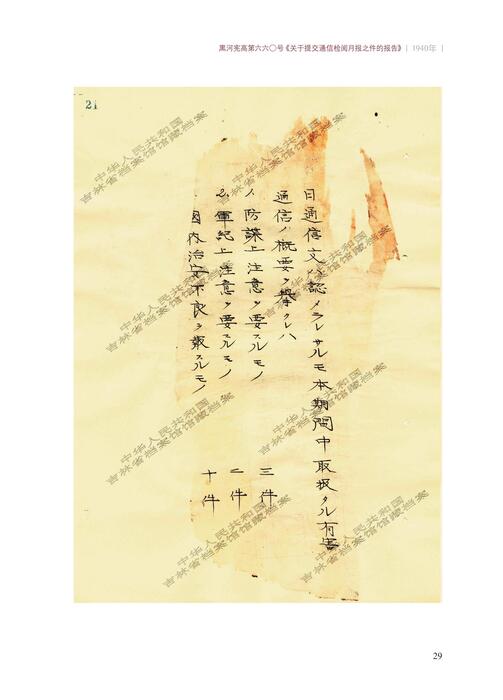 黑河宪高第六六〇号《关于提交通信检阅月报之件的报告》 | 1940年 |
21
日通信文ハ認メラレサルモ本期間中取扱タル有害
通信ノ概要ヲ擧クレハ
1. 防諜上注意ヲ要スルモノ 三件
2. 軍紀上注意ヲ要スルモノ 二件
国内治安不良ヲ報スルモノ 十件
中华人民共和国
吉林省档案馆馆藏档案
中华人民共和国
吉林省档案馆馆藏档案
中华人民共和国
吉林省档案馆馆藏档案
中华人民共和国
吉林省档案馆馆藏档案
中华人民共和国
吉林省档案馆馆藏档案
中华人民共和国
吉林省档案馆馆藏档案
29